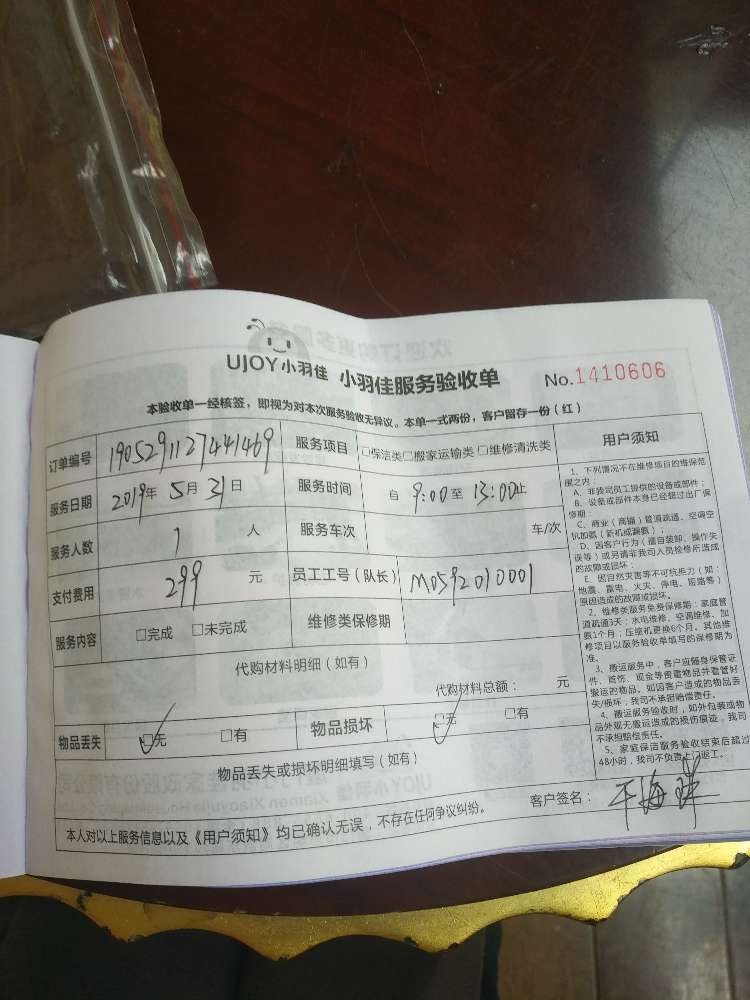 UJOY小羽佳 小羽佳服务验收单 No.1410606
本验收单一经核签，即视为对本次服务验收无异议。本单一式两份，客户留存一份（红）
订单编号 190529112744146​9 服务项目 □保洁类□搬家运输类□维修清洗类
服务日期 2019年 5月 31日 服务时间 自 9:00至 13:00止
服务人数 1 人 服务车次 车/次
支付费用 299 元 员工工号（队长） M0592010001
服务内容 □完成 □未完成 维修类保修期
代购材料明细（如有）
代购材料总额： 元
物品丢失 □无 □有 物品损坏 □无 □有
物品丢失或损坏明细填写（如有）
本人对以上服务信息以及《用户须知》均已确认无误，不存在任何争议纠纷。 客户签名：
用户须知
1、下列情况不在维修项目的维保范
围之内：
A、非我司员工提供的设备或部件；
B、设备或部件本身已经超过出厂保
修期；
C、商业（商铺）管道疏通、空调空
机加氨（新机或漏氨）；
D、因客户行为（擅自装卸、操作失
误等）或另请非我司人员检修所造成
的故障或损坏；
E、因自然灾害等不可抗拒力（如：
地震、雷电、火灾、停电、短路等）
原因造成的故障或损坏。
2、维修类服务免费保修期：家庭管
道疏通3天；水电维修、空调维修、加
氨1个月；压缩机更换6个月。其他维
修项目以服务验收单填写的保修期为
准。
3、搬运服务中，客户应随身保管证
件、首饰、现金等贵重物品并看管好
搬运的物品。如因客户造成的物品丢
失/损坏，我司不承担赔偿责任。
4、搬运服务验收时，如外包装或物
品外观无搬运造成的损伤痕迹，我司
不承担赔偿责任。
5、家庭保洁服务验收结束后超过
48小时，我司不负责上门返工。